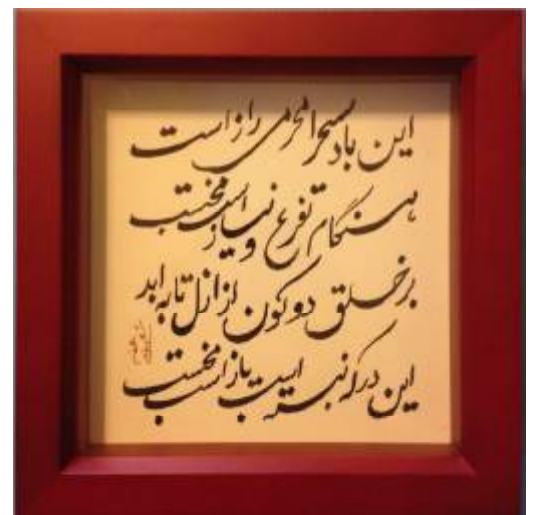 این باد سحر محرمی راز است مخسب
هنگام تفرع و نیاز است مخسب
بر خلق دو کون از ازل تا به ابد
این در که نبسته است باز است مخسب